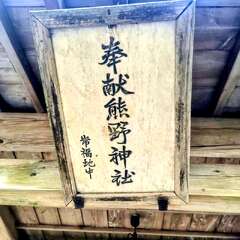 奉献熊野神社
常福地中